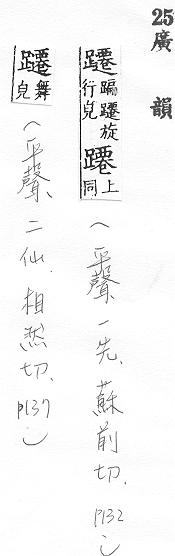 25廣韻
躚蹁躚旋行皃蹮上同(平聲、一先、蘇前切、P132)
躚舞皃(平聲、二仙、相然切、P137)